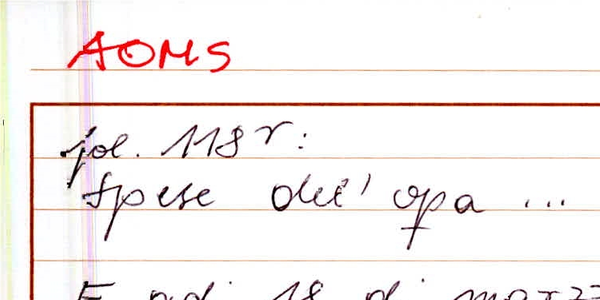 AOMS
fol. 118r:
Spese dell' opa ...
E adi 18 di marzo